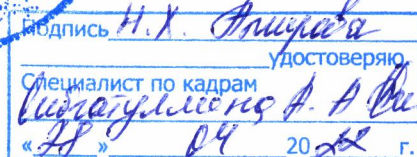 Подпись Н.Х. Амирова
удостоверяю
Специалист по кадрам
Сибгатуллина А. А
«28» 04 2022 г.